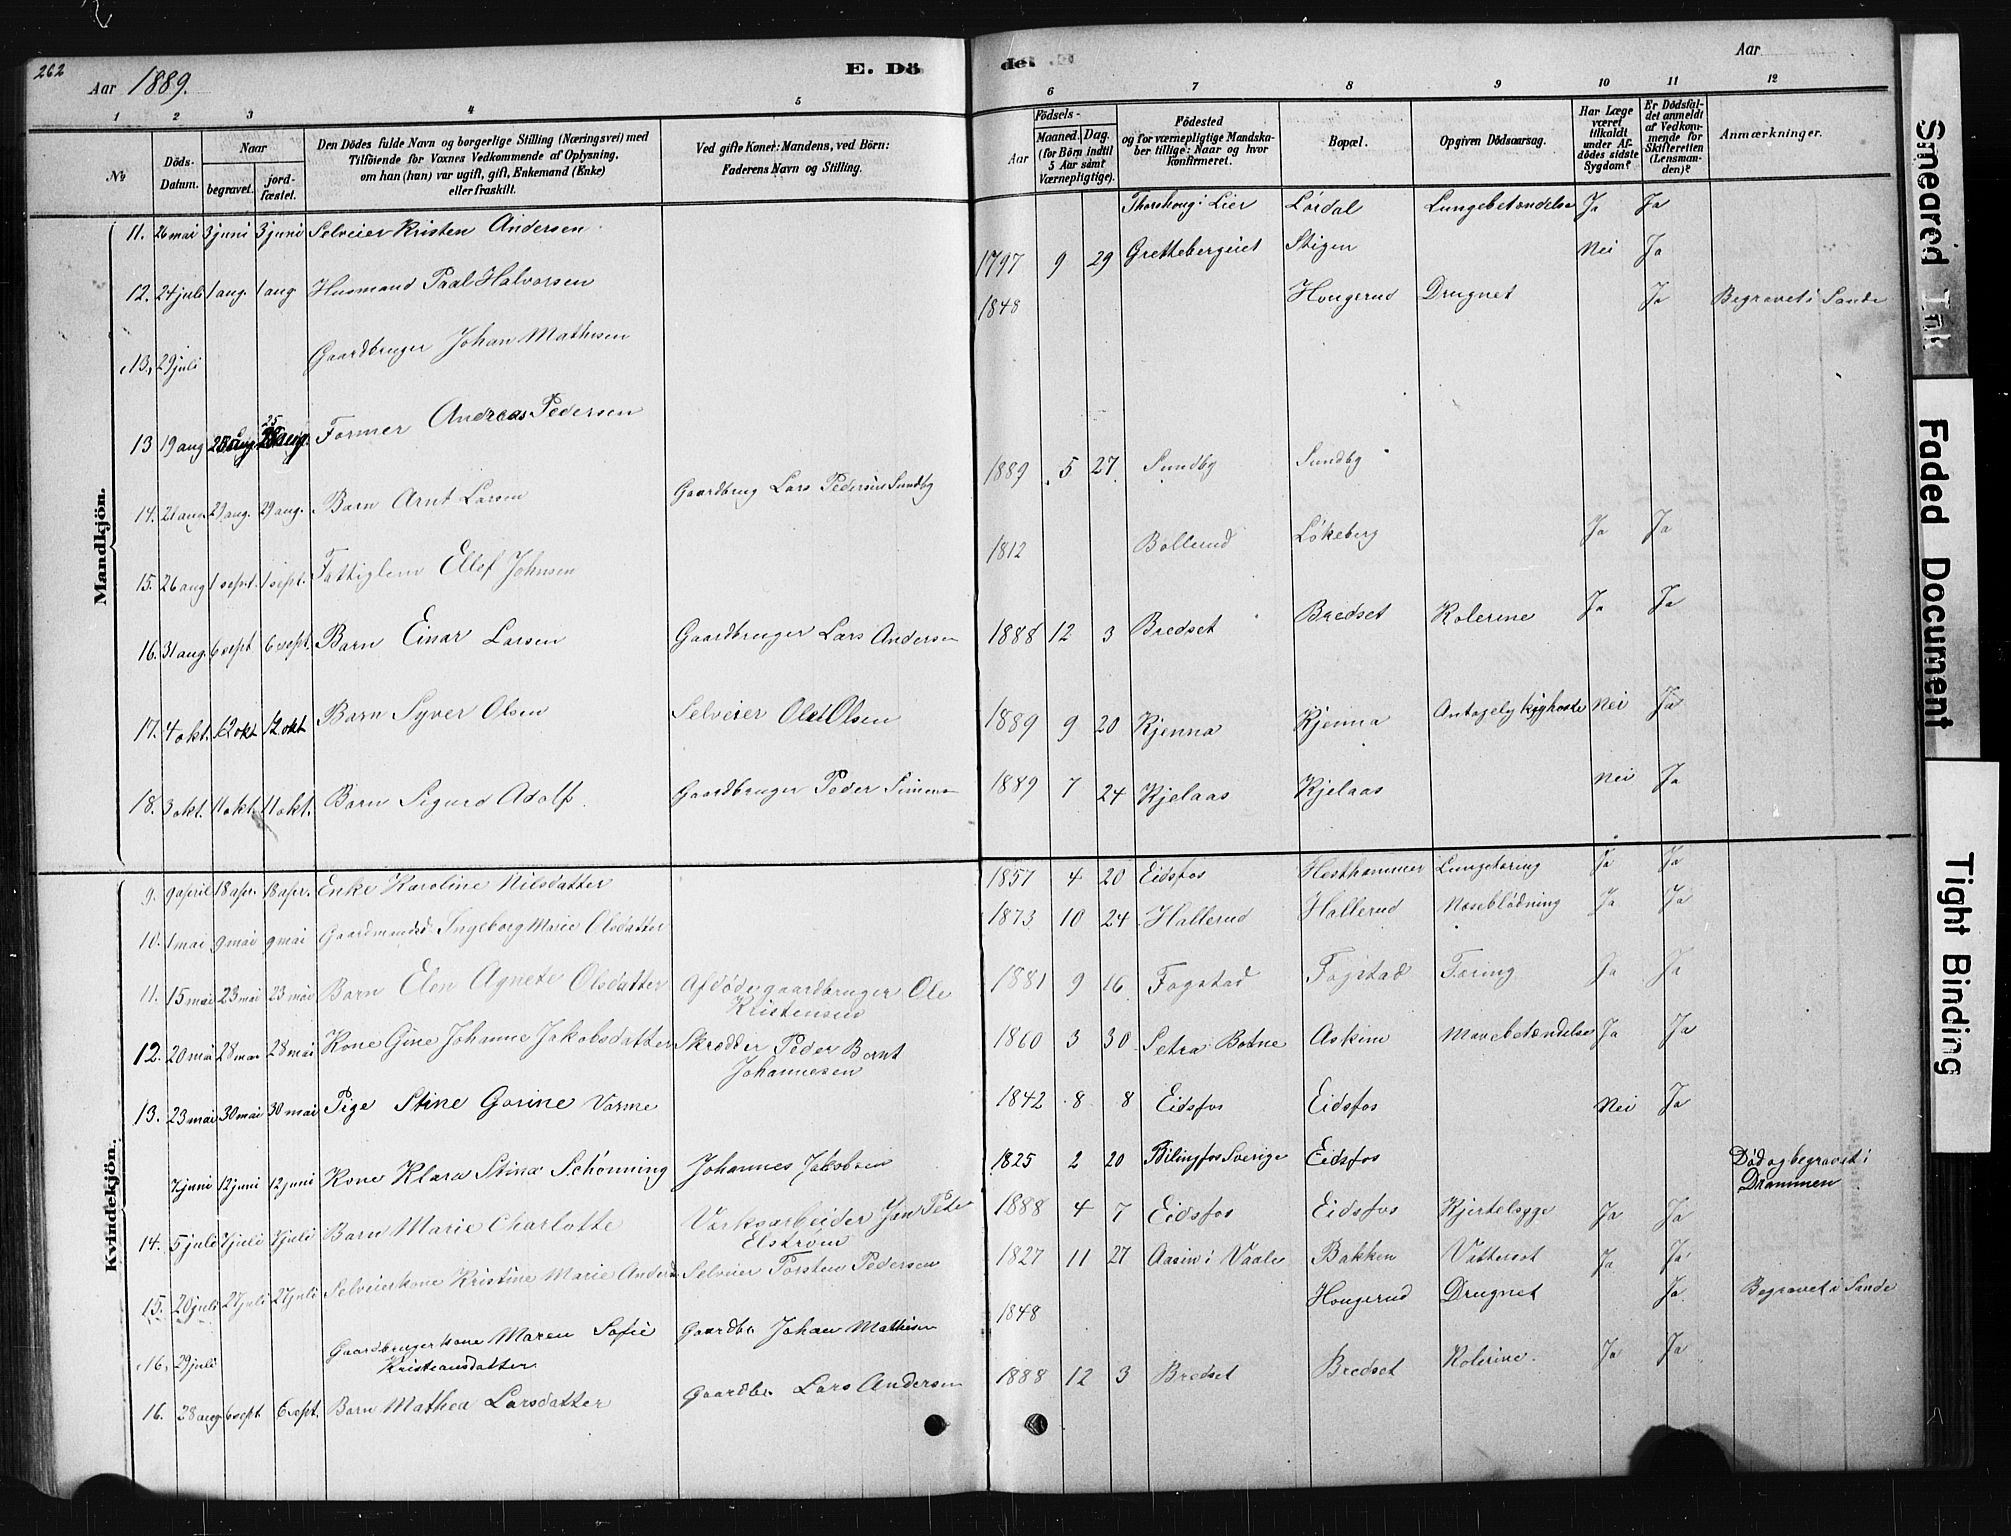 262
Aar 1889.
E. Dö
de.
Aar
1 2 3 4 5
6 7 8 9 10 11 12
No
Döds-Datum.
Naar
begravet.
jord-fæstet.
Den Dödes fulde Navn og borgerlige Stilling (Næringsvei) med
Tilföiende for Voxnes Vedkommende af Oplysning,
om han (hun) var ugift, gift, Enkemand (Enke)
eller fraskilt.
Ved gifte Koner: Mandens, ved Börn:
Faderens Navn og Stilling.
Födsels-
Aar
Maaned. Dag.
(for Börn indtil
5 Aar samt
Værnepligtige).
Födested
og for værnepligtige Mandska-
ber tillige: Naar og hvor
konfirmeret.
Bopæl.
Opgiven Dödsaarsag.
Har Læge
været
tilkaldt
under Af-
dödes sidste
Sygdom?
Er Dödsfal-
det anmeldt
af Vedkom-
mende for
Skifteretten
(Lensman-
den)?
Anmærkninger.
Mandkjön.
11. 26 mai 3 juni 3 juni Selveier Kristen Andersen Thorshoug i Lier Lördal Lungebetændelse Ja Ja
12. 24 juli 1 aug. 1 aug Husmand Paal Halvorsen 1797 9 29 Grettebergeiet Stigen Nei Ja
13, 29 juli Gaardbruger Johan Mathisen 1848 Hougerud Druknet Ja Begravet i Sande
13 19 aug 25 aug. Former Andreas Pedersen
14. 21 aug. 29 aug. 29 aug. Barn Arnt Larsen Gaardbrug Lars Pedersen Sundby 1889 5 27 Sundby Sundby
15. 26 aug 1 sept. 1 sept. Fattiglem Ellef Johnsen 1812 Bollerud Lökeberg Ja Ja
16. 31 aug. 6 sept 6 sept. Barn Einar Larsen Gaardbruger Lars Andersen 1888 12 3 Bredset Bredset Kolerine Ja Ja
17. 4 okt. 12 okt 12 okt Barn Syver Olsen Selveier Ole Olsen 1889 9 20 Kjenna Kjenna Antagelig kighoste Nei Ja
18. 3 okt. 11 okt. 11 okt. Barn Sigurd Adolf. Gaardbruger Peder Simens 1889 7 24 Kjelaas Kjelaas Nei Ja
Kvindekjön.
9. 9 april 18 apr. 18 apr. Enke Karoline Nilsdatter 1857 4 20 Eidsfos Hesthammer Lungetæring Ja Ja
10. 1 mai 9 mai 9 mai Gaardmandsd. Ingeborg Marie Olsdatter 1873 10 24 Hallerud Hallerud Næseblödning Ja Ja
11. 15 mai 23 mai 23 mai Barn Elen Agnete Olsdatter Afdöde gaardbruger Ole
Kristensen 1881 9 16 Fogstad Fogstad Tæring Ja Ja
12. 20 mai 28 mai 28 mai Kone Gine Johanne Jakobsdatter Skrædder Peder Bernt
Johannesen 1860 3 30 Setra Botne Askim Mavebetændelse Ja Ja
13. 23 mai 30 mai 30 mai Pige Stine Gorine Varme 1842 8 8 Eidsfos Eidsfos Nei Ja
7 juni 12 juni 12 juni Kone Klara Stina Schönning Johannes Jakobsen 1825 2 20 Bilingfos Sverige Eidsfos Död og begravet i
Drammen
14. 5 juli 7 juli 7 juli Barn Marie Charlotte Værksarbeider Jan Peter
Elström 1888 4 7 Eidsfos Eidsfos Kjertelsyge Ja Ja
15. 20 juli 27 juli 27 juli Selveierkone Kristine Marie Andersd Selveier Torsten Pedersen 1827 11 27 Aasen i Vaale Bakken Vattersot Ja Ja
16, 29 juli Gaardbrugerkone Maren Sofie
Kristiansdatter Gaardbr Johan Mathisen 1848 Hougerud Druknet Ja Begravet i Sande
16. 28 aug 6 sept 6 sept. Barn Mathea Larsdatter Gaardbr Lars Andersen 1888 12 3 Bredset Bredset Kolerine. Ja Ja
Smeared Ink
Faded Document
Tight Binding